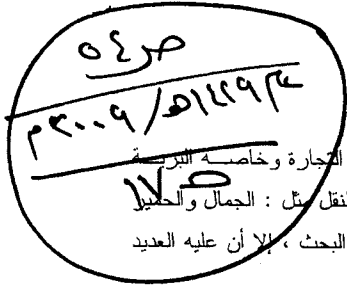 ص ٥٤
١٤٢٩هـ/٢٠٠٩م
ص ١٧
التجارة وخاصة البرية
لنقل مثل : الجمال والحمير
البحث ، إلا أن عليه العديد